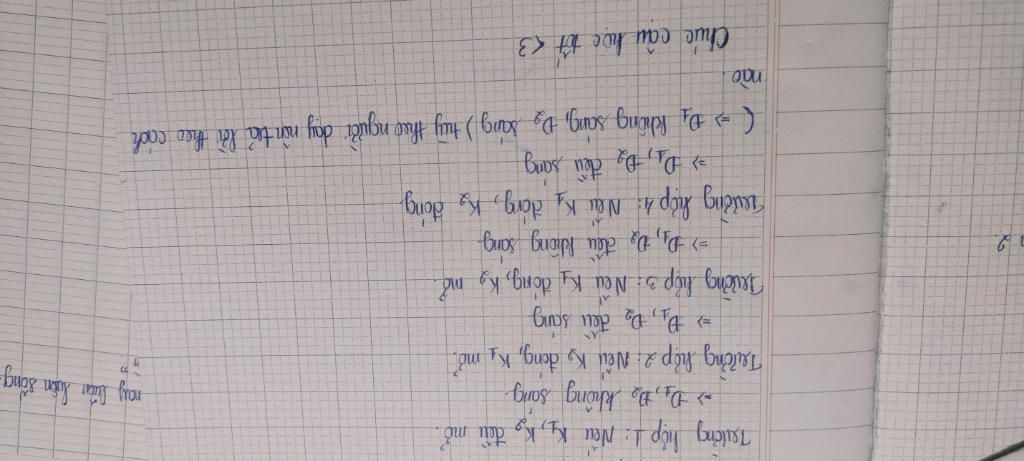 Trường hợp 1: Nếu K1, K2 đều mở.
=> Đ1, Đ2 không sáng
Trường hợp 2: Nếu K2 đóng, K1 mở.
=> Đ1, Đ2 đều sáng
Trường hợp 3: Nếu K1 đóng, K2 mở
=> Đ1, Đ2 đều không sáng
Trường hợp 4: Nếu K1 đóng, K2 đóng
=> Đ1, Đ2 đều sáng
(=> Đ1 không sáng, Đ2 sáng) tùy theo người dạy nên trả lời theo cách
nào.
Chúc cậu học tốt <3